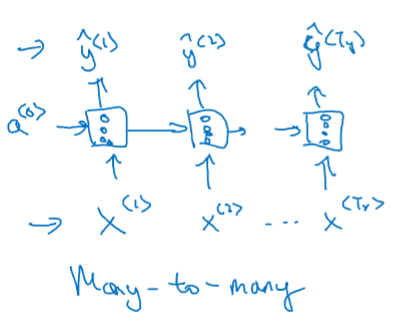 → ŷ⟨1⟩ ŷ⟨2⟩ ŷ⟨Ty⟩
a⟨0⟩
→ X⟨1⟩ x⟨2⟩ ... x⟨Tx⟩
Many-to-many